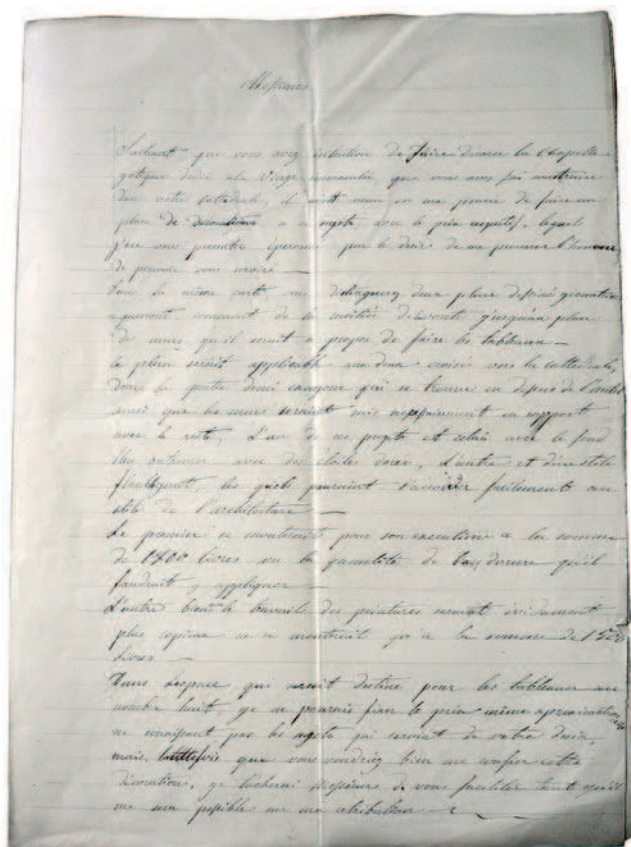 Messieurs
Sachant que vous avez intention de faire décorer la Chapelle
gotique dedié a la Vierge immaculée, que vous avez fai construire
dans votre cathédrale, il vient venu en ma pensée de faire un
plan de décorations a ce sujets, avec le prix respectif, lequel
j'ose vous presenter éperonné par le desir de me procurer l'honneur
de pouvoir vous servir —
Dans la même carte, vous distinguerez deux plans
de la moitié de la voute jusqu'au plan
de murs, qu'il serait a propos de faire les tableaux —
Le plan serait applicable aux deux croisés vers la cathédrale,
donc la partie demi exagone qui se trouve en dessus de l'autel
ainsi que les murs seraient mis nessessairement en rapport
avec le reste, L'un de ces projets et celui avec le fond
bleu outremer avec des étoiles dorés, L'autre et d'une stile
les quels pouraient s'accorder facilements au
stile de l'architecture —
Le premier se monterait pour son execution a la somme
de livres vu la quantité de dorure qu'il
faudrait y appliquer —
L'autre bien le travaile des peintures serait évidament
plus copieux ne monterait qu'à la somme de
livres —
Dans l'espace qui serait destiné pour les tableaux au
nombre huit, je ne pourais fixer le prix même aproximative
ne conaissant pas les sujets qui seraient de votre desir,
mais, touttefois que vous voudriez bien me confier cette
décoration, je tacherai Messieurs de vous faciliter tant qu'il
me sera possible sur ma retribution —